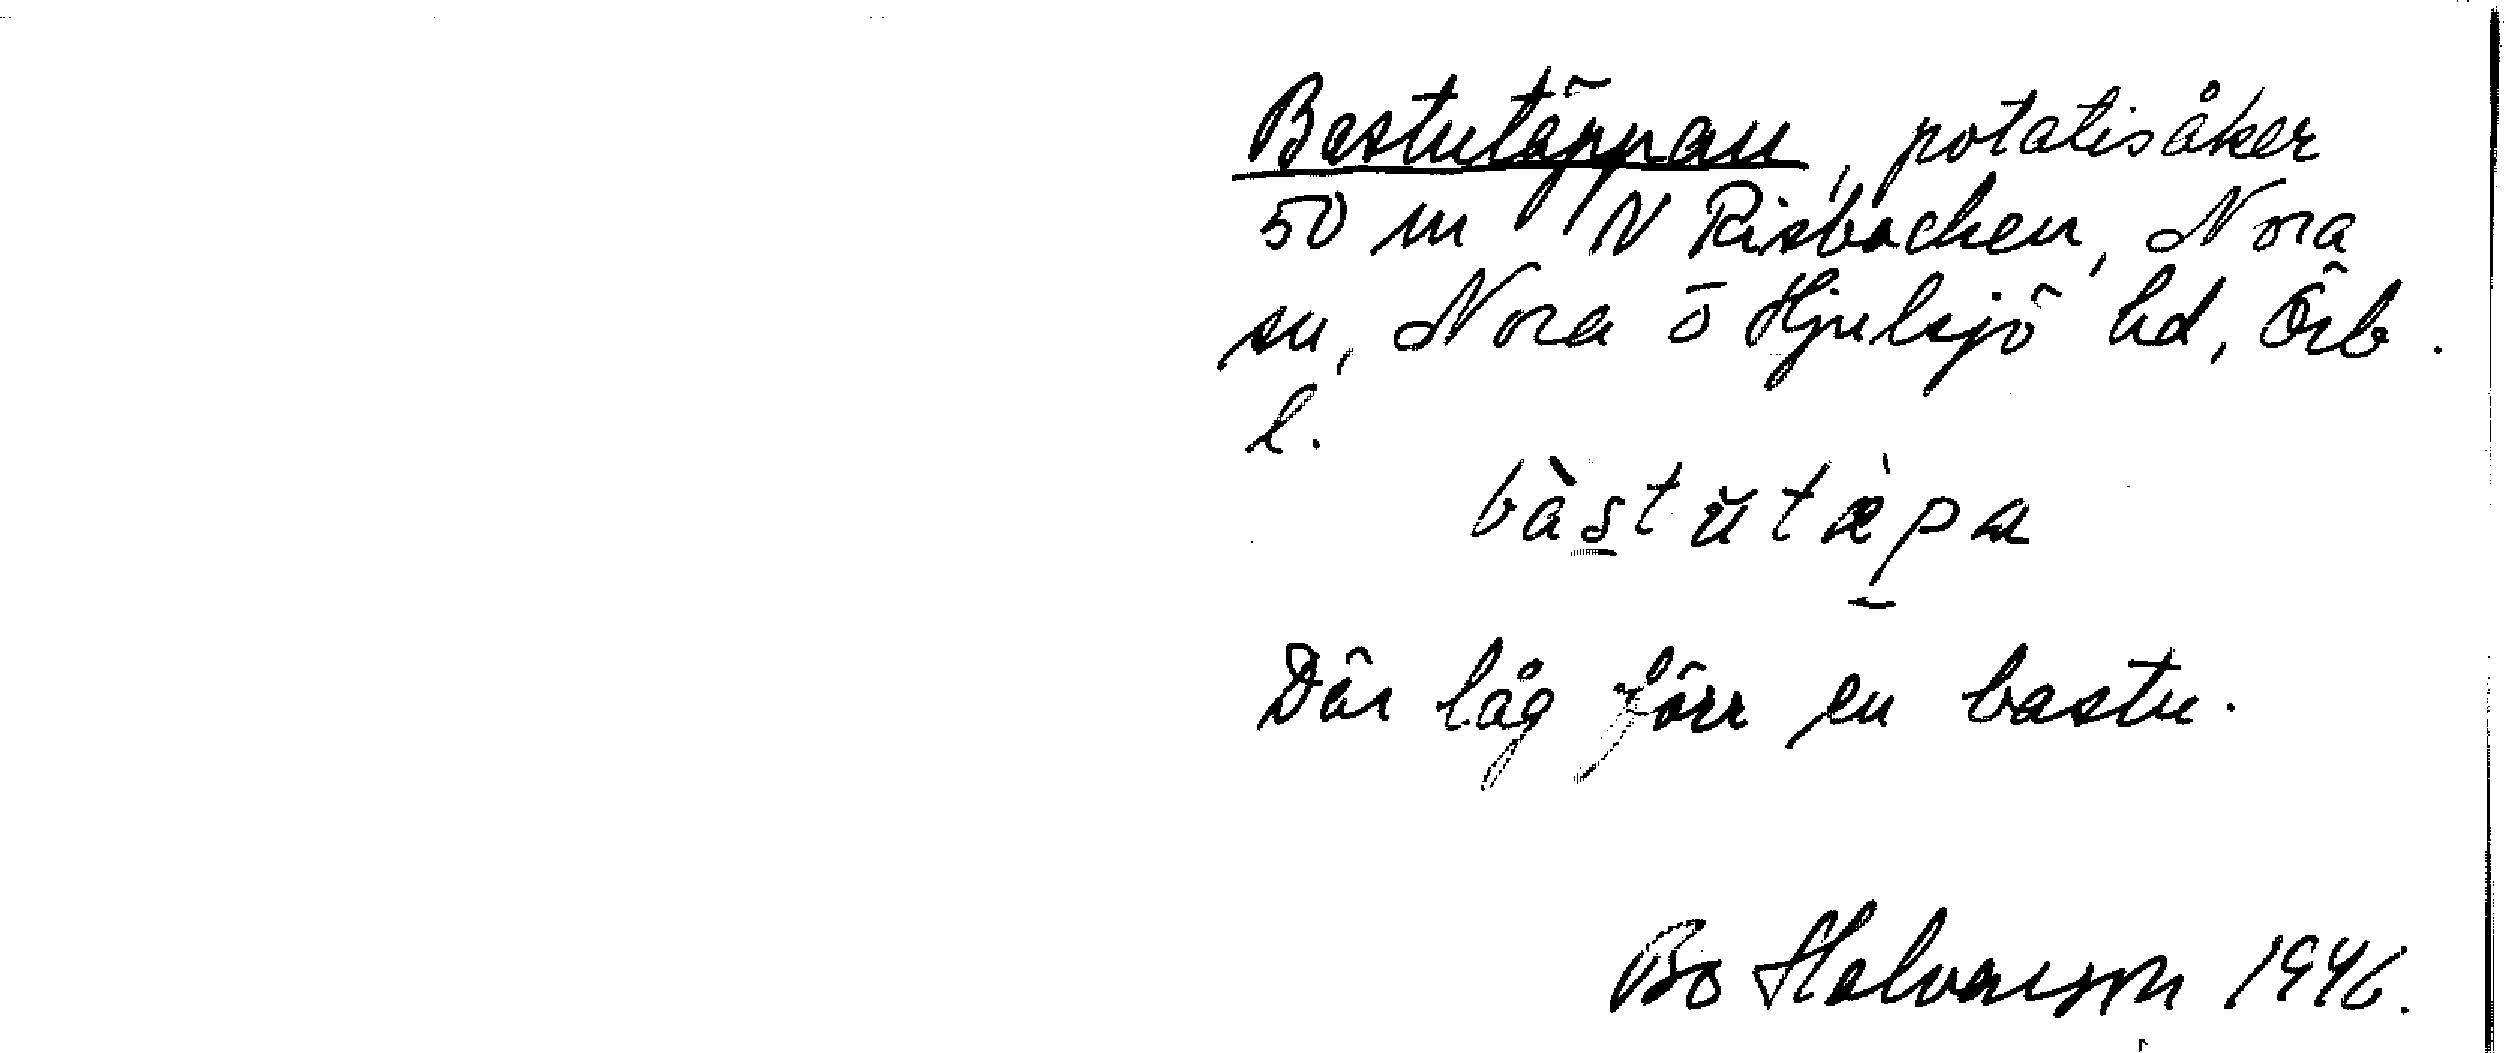 Bastutäppan, potatisåker
50 m N Risbacken, Nora
sn, Nora o Hjulsjö hd, Örb.
l.
bàstŭtæ̀pa
Där låg förr en bastu.
Bo Halvarson 1946.